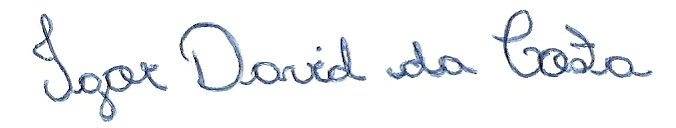 Igor David da Costa